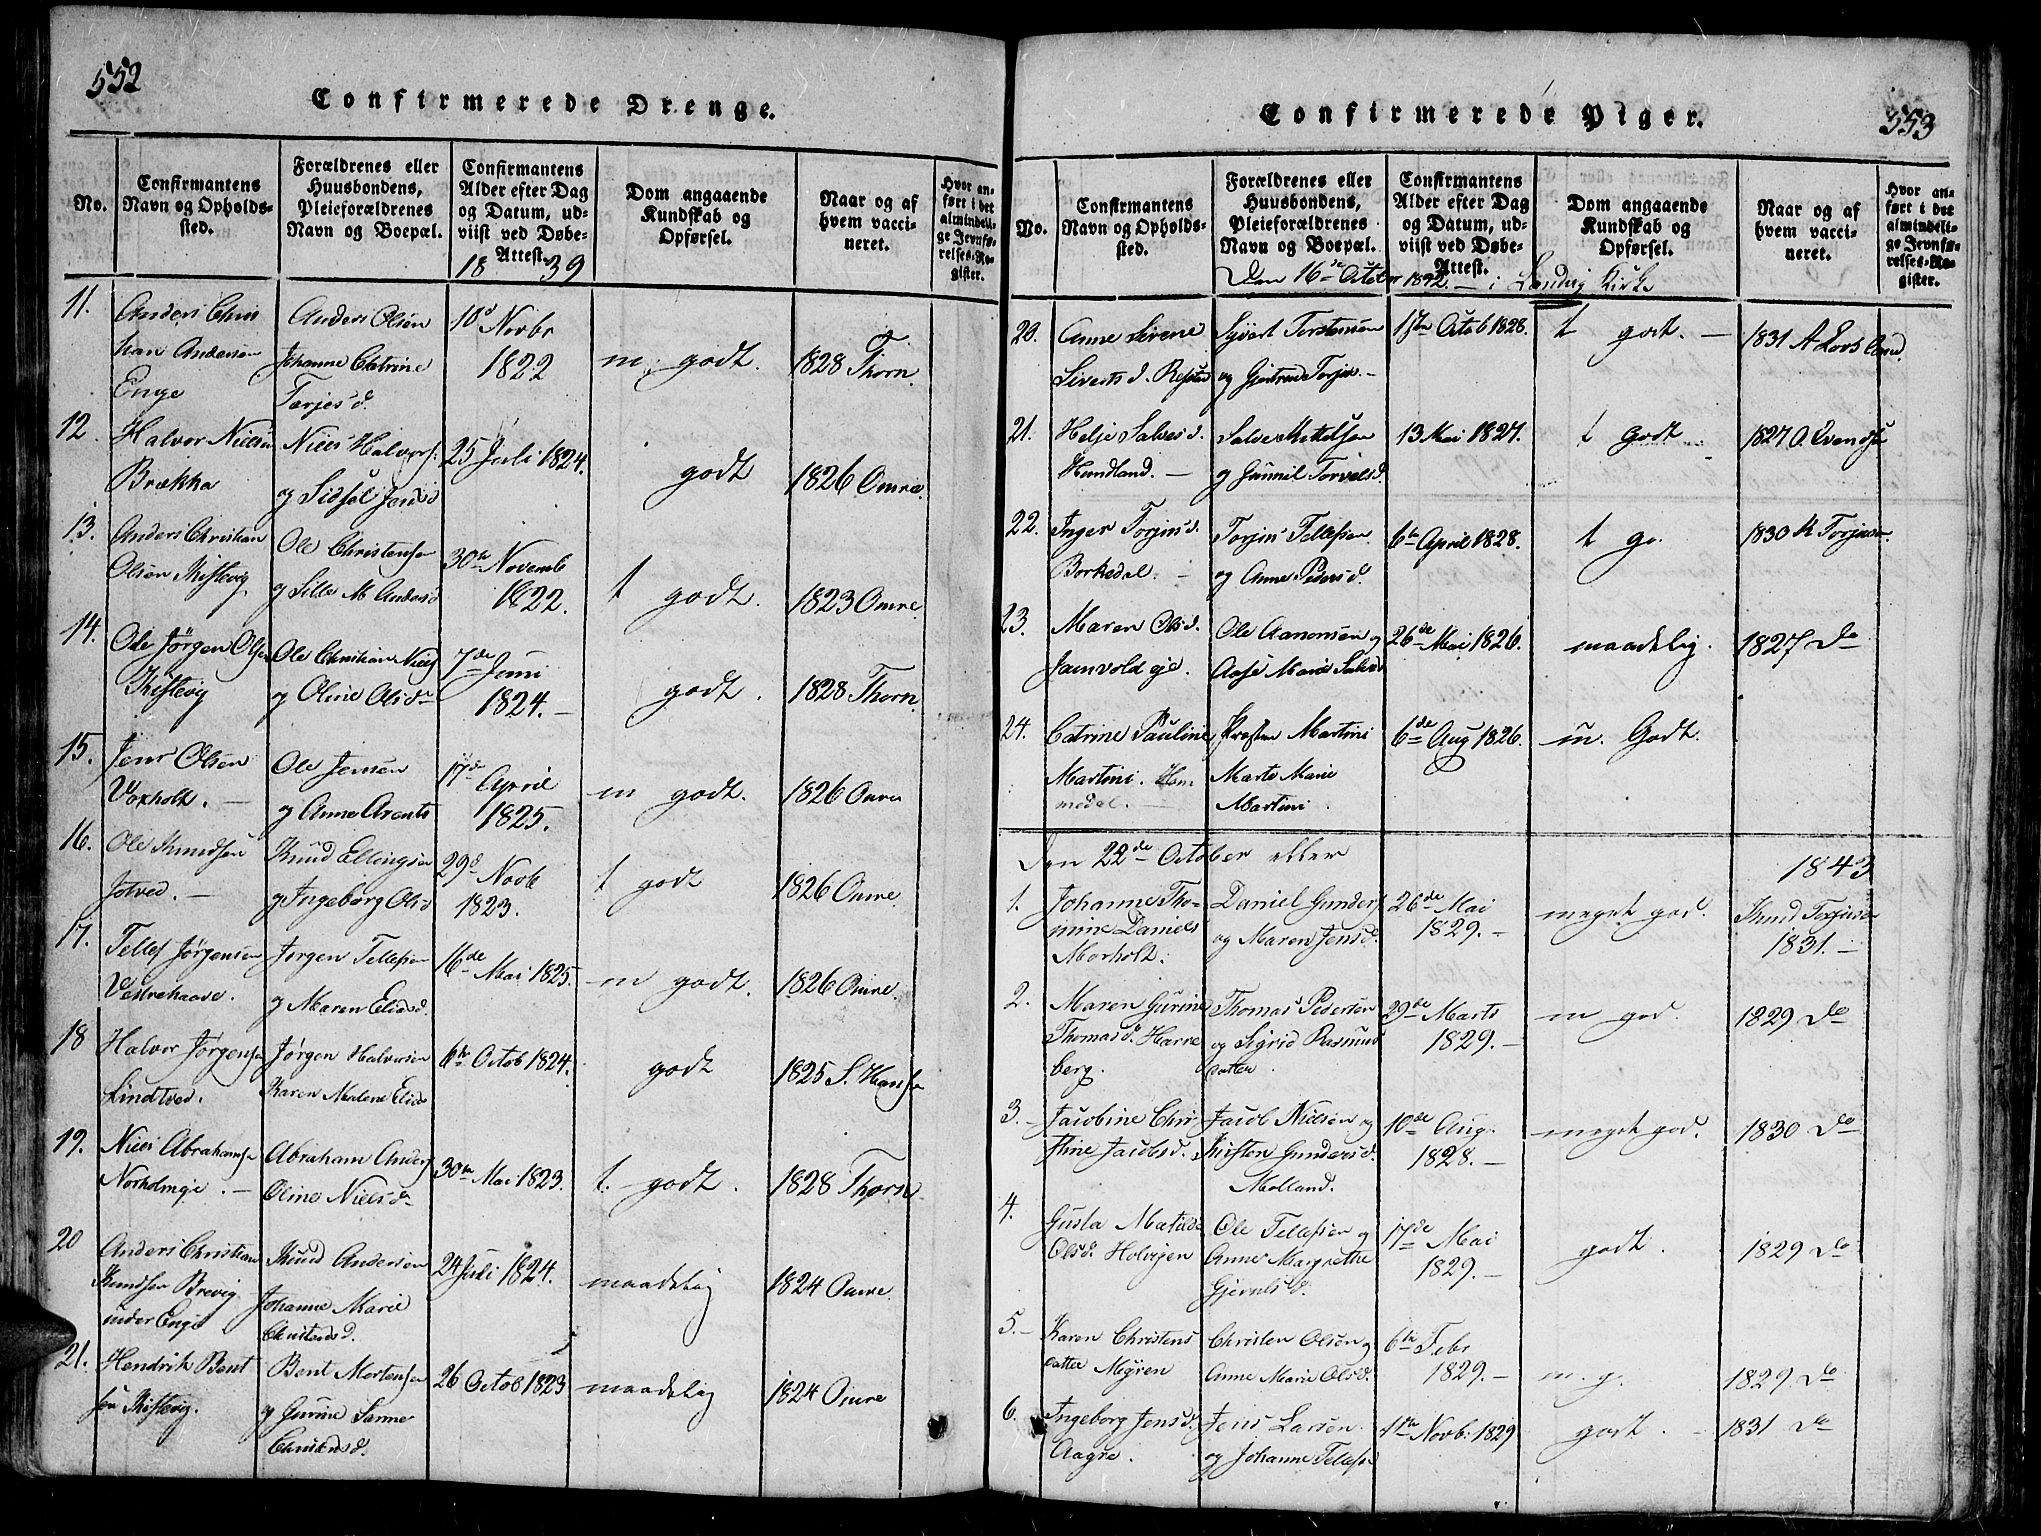 552
Confirmerede Drenge.
No.
Confirmantens
Navn og Opholds-
sted.
Forældrenes eller
Huusbondens,
Pleieforældrenes
Navn og Boepæl.
Confirmantens
Alder efter Dag
og Datum, ud-
viist ved Døbe-
Attest.
1839
Dom angaaende
Kundskab og
Opførsel.
Naar og af
hvem vacci-
neret.
Hvor an-
ført i det
almindeli-
ge Jevnfø-
relses-Re-
gister.
11.
Anders Chris
tian Andersen
Enge
Anders Olsen
Johanne Catrine
Tarjesd.
10d Novbr
1822
m. godt.
1828 Thorn
12.
Halvor Nielsen
Brækka
Niels Halvors.
og Sidsel Jensd
25 Juli 1824.
godt
1826 Omre.
13.
Anders Christian
Olsen Kistevig
Ole Christensen
og Sille M. Andersd
30te Novemb
1822.
t godt.
1823 Omre
14.
Ole Jørgen Olsen
Kistevig
Ole Christian Niels
og Oline Olsd
7de Juni
1824.
godt.
1828 Thorn
15.
Jens Olsen
Voxholt.
Ole Jensen
og Anne Arents
17d April
1825.
m godt.
1826 Omre
16.
Ole Knudsen
Jotved.
Knud Ellingsen
og Ingeborg Olsd
29d Novb
1823.
t godt
1826 Omre.
17.
Tellef Jørgensen
Vestrehaave.
Jørgen Tellefsen
og Maren Eliasd.
16de Mai 1825.
m godt.
1826 Omre.
18
Halvor Jørgensen
Lindtved.
Jørgen Halvorsen
Karen Malene Elias
6te Octob 1824.
godt
1825 S. Hansen
19.
Niels Abrahamsen
Norholmeje.
Abraham Anders
Oline Nielsd
30te Mai 1823.
t. godt.
1828 Thorn
20
Anders Christian
Knudsen Brevig
under Enge
Knud Andersen
Johanne Marie
Christensd.
24 Juli 1824.
maadelig
1824 Omre.
21.
Hendrik Bent
sen Kistevig.
Bent Mortensen
og Gurine Sanne
Christensd.
26 Octob 1823
maadelig
1824 Omre
553
Confirmerede Piger.
No.
Confirmantens
Navn og Opholds-
sted.
Forældrenes eller
Huusbondens,
Pleieforældrenes
Navn og Boepæl.
Confirmantens
Alder efter Dag
og Datum, ud-
viist ved Døbe-
Attest.
Dom angaaende
Kundskab og
Opførsel.
Naar og af
hvem vacci-
neret.
Hvor an-
ført i det
almindeli-
ge Jevnfø-
relses-Re-
gister.
Den 16de October 1842. – i Landvig Kirke
20.
Anne Sirene
Sivertsd. Repsta
Syvert Torstensen
og Gjertrud Torjus.
1ste Octob 1828.
t godt.
1831 A
21.
Helje Salvesd.
Hundland.
Salve Mittelsen
og Gunnil Torvalsd.
13 Mai 1827.
t godt
1827 O. Evensen
22.
Inger Torjusd.
Borkedal.
Torjus Tellefsen
og Anne Pedersd.
6te April 1828.
t go.
1830 K Torjusen
23.
Maren Olsd.
Jamvold eje.
Ole Aanonsen og
Aase Marie Salvesd
26de Mai 1826.
maadelig.
1827 Do
24.
Catrine Pauline
Martini. Hom
medal.
Kristen Martini
Marte Marie
Martini.
6de Aug 1826.
m. Godt.
Den 22de October efter
1843
1.
Johanne Tho-
mine Daniels
Morholt.
Daniel Gunders
og Maren Jensd.
26de Mai
1829.
meget god.
Knud Torjusen
1831.
2.
Maren Gurine
Thomasd. Harre
berg.
Thomas Pedersen
og Sigrid Rasmus
datter.
29de Marts
1829.
m god.
1829 Do
3.
Jacobine Chri
stine Jacobsd.
Jacob Nielsen og
Kirsten Gundersd.
Molland.
10de Aug.
1828.
meget god.
1830 Do
4.
Gusta Matilde
Olsd. Holvigen
Ole Tellefsen og
Anne Margrethe
Gjerulsd.
17de Mai
1829.
godt.
1829 Do
5.
Karen Christens
datter Myren
Christen Olsen og
Anne Marie Olsd.
6te Febr
1829.
m. g.
1829 Do
6.
Ingeborg Jensd.
Aagre.
Jens Larsen
og Johanne Tellefs
1ste Novb. 1829
godt.
1831 Do